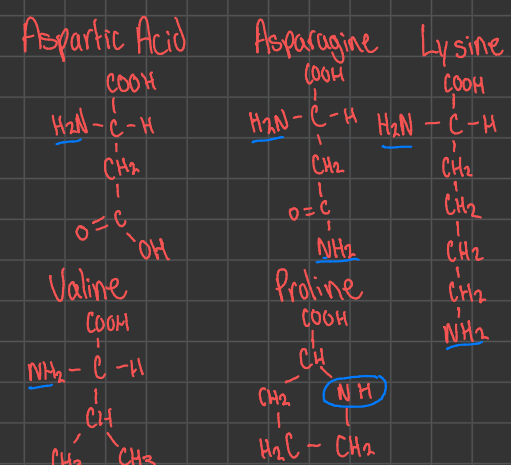 Aspartic Acid
COOH
H2N - C - H
CH2
O = C
OH
Asparagine
COOH
H2N - C - H
CH2
O = C
NH2
Lysine
COOH
H2N - C - H
CH2
CH2
CH2
CH2
NH2
Valine
COOH
NH2 - C - H
CH
CH3 CH3
Proline
COOH
CH
CH2 NH
H2C - CH2